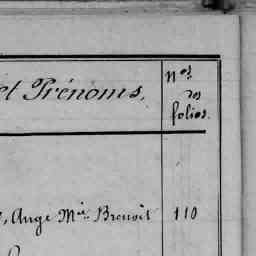 et Prénoms.
Nos
des
folios.
, Ange Mie Benoit 110